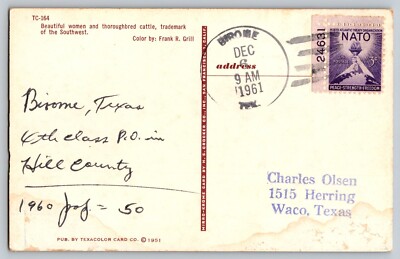 TC-164
Beautiful women and thoroughbred cattle, trademark
of the Southwest.
Color by: Frank R. Grill
BIROME,
DEC
6
9 AM
1961
TEX.
24631
NATO
3¢
PEACE-STRENGTH-FREEDOM
address
Birome, Texas
4th class P.O. in
Hill County
1960 pop = 50
Charles Olsen
1515 Herring
Waco, Texas
PUB. BY TEXACOLOR CARD CO. © 1951